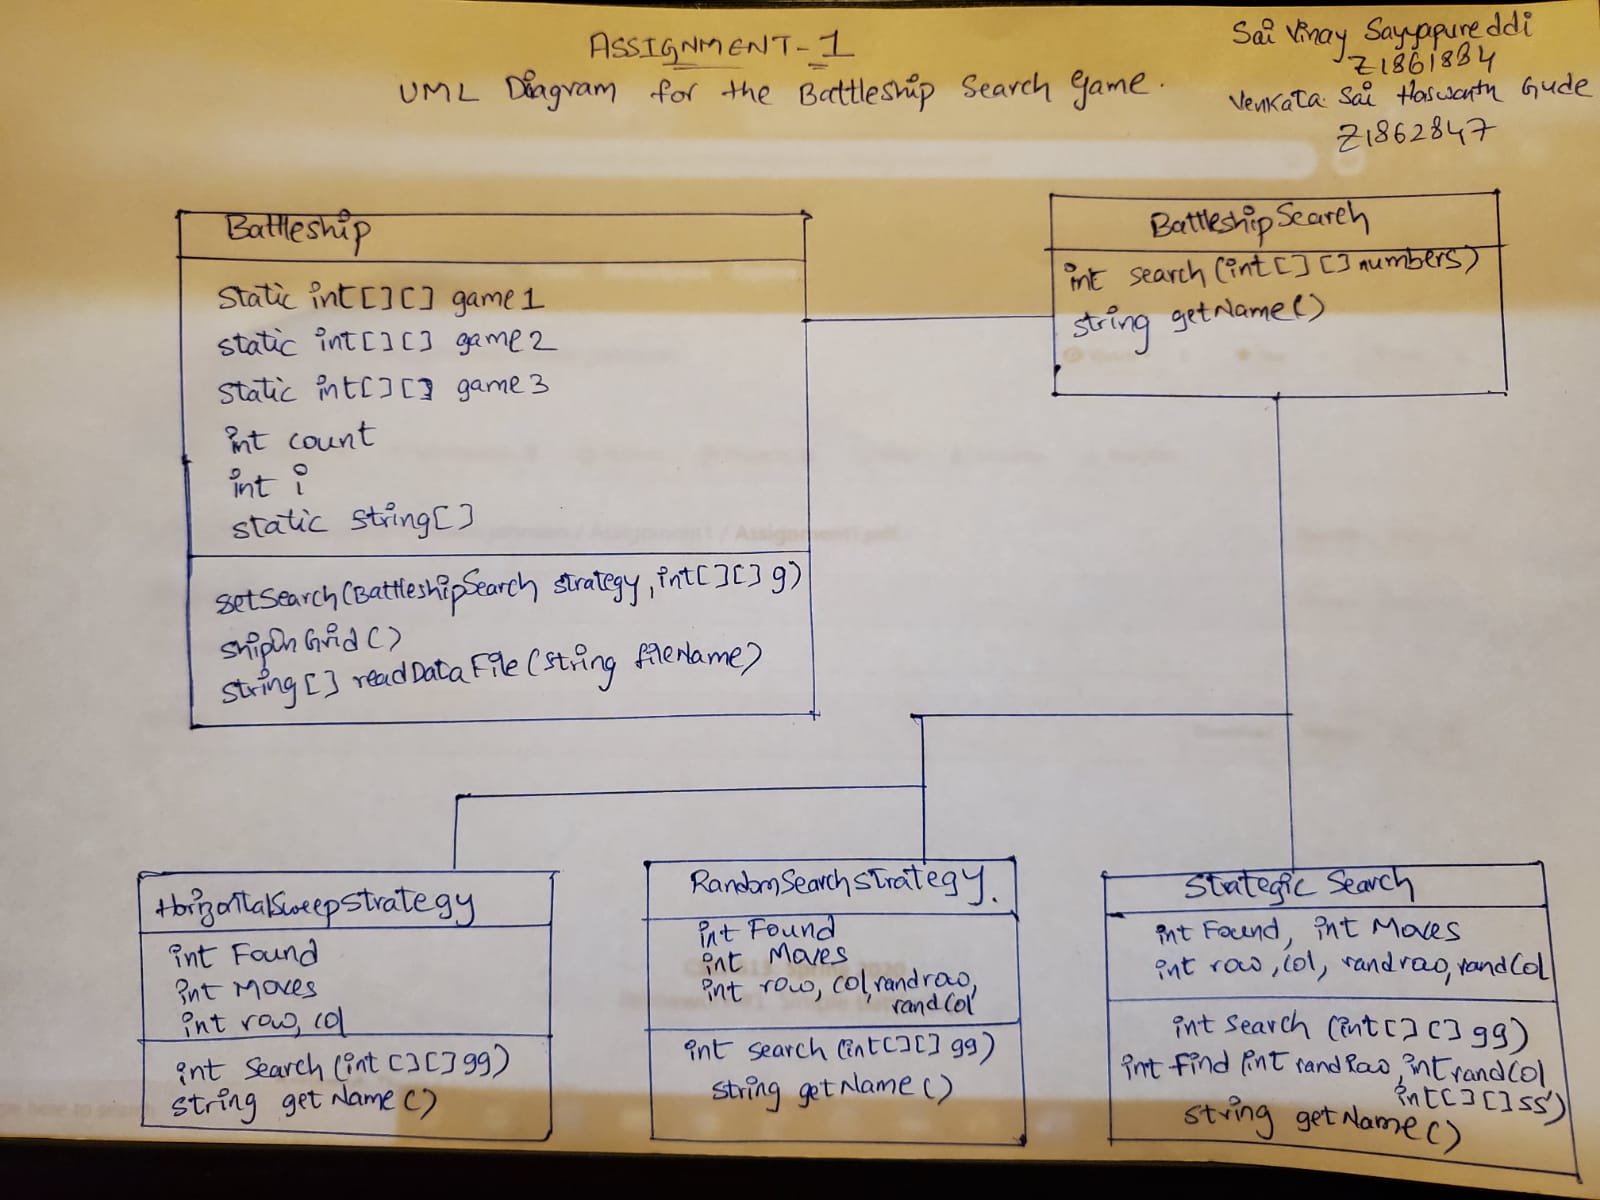 ASSIGNMENT-1
UML Diagram for the Battleship Search Game.
Sai Vinay Sayyapureddi
Z1861884
Venkata Sai Haswanth Gude
Z1862847
Battleship
Static int[][] game1
static int[][] game2
static int[][] game3
int count
int i
static string[]
setSearch(BattleshipSearch strategy, int[][] g)
shipOnGrid()
string[] readDataFile(string fileName)
BattleshipSearch
int search(int[][] numbers)
string getName()
HorizontalSweepStrategy
int Found
int Moves
int row, col
int Search(int[][] gg)
string getName()
RandomSearchStrategy.
int Found
int Moves
int row, col, randrow,
randCol
int search(int[][] gg)
string getName()
Stategic Search
int Found, int Moves
int row, col, randrow, randCol
int Search (int[][] gg)
int find (int randRow, int randCol
int[][] ss)
string getName()